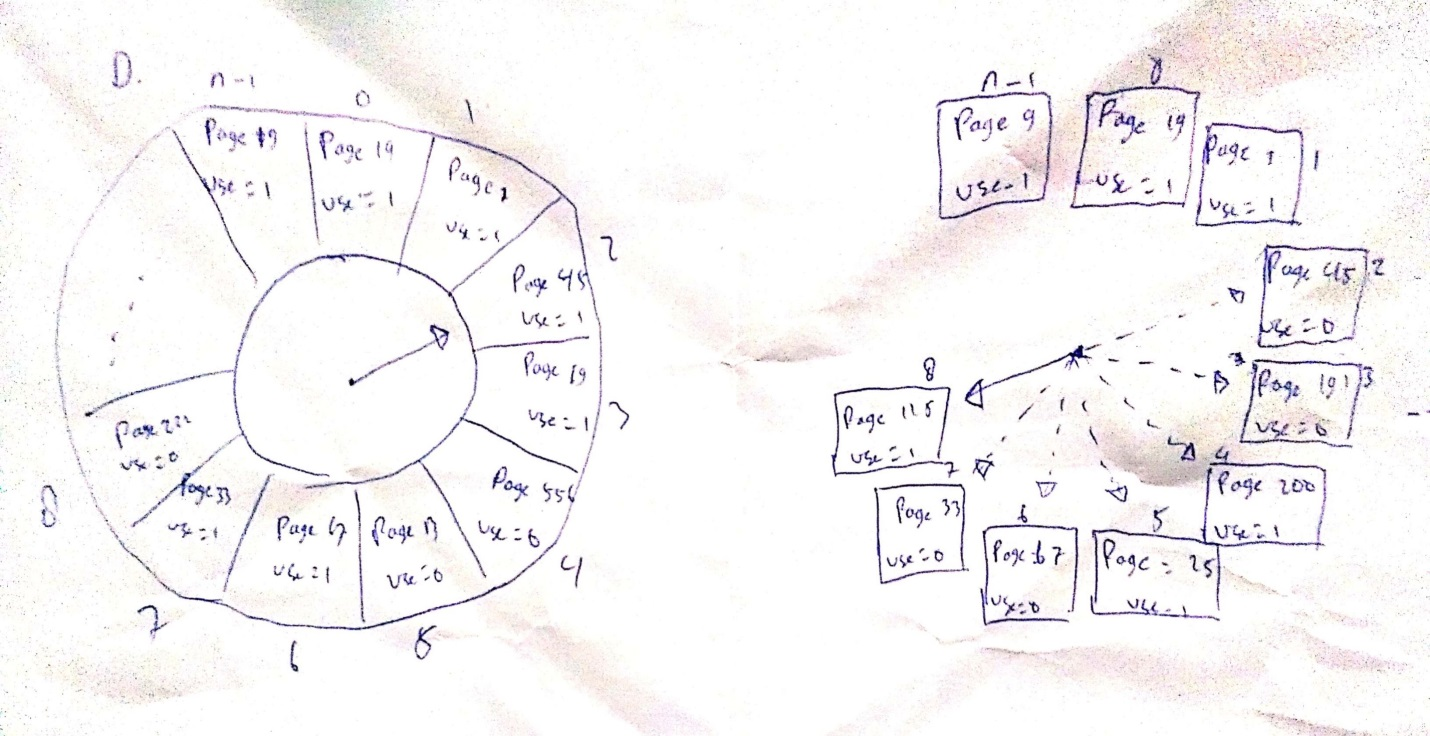 D.
n-1
0
1
Page 19
use = 1
Page 19
use = 1
Page 1
use = 1
2
Page 45
use = 1
Page 19
use = 1
3
Page 556
use = 0
4
Page 13
use = 0
5
Page 67
use = 1
6
Page 33
use = 1
7
Page 222
use = 0
8
n-1
Page 9
use-1
0
Page 19
use = 1
Page 1
use = 1
1
Page 45
use = 0
2
Page 191
use = 0
3
4
Page 200
use = 1
5
Page = 25
use - 1
6
Page 67
use=0
7
Page 33
use=0
8
Page 115
use = 1